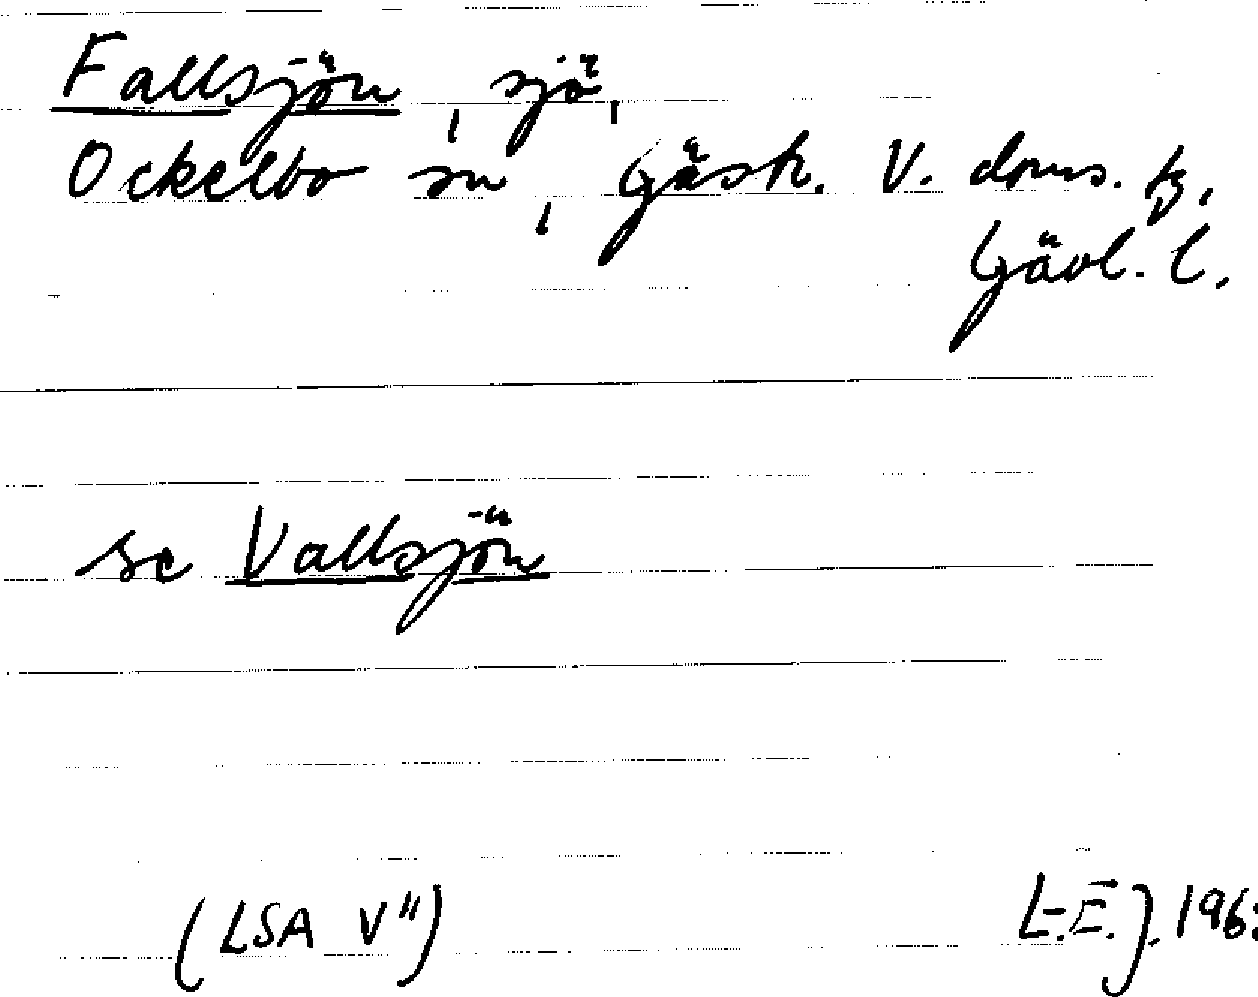 Fallsjön, sjö,
Ockelbo sn, Gästr. V. doms. tg,
Gävl. l.
se Vallsjön
(LSA V")
L.E.J. 196